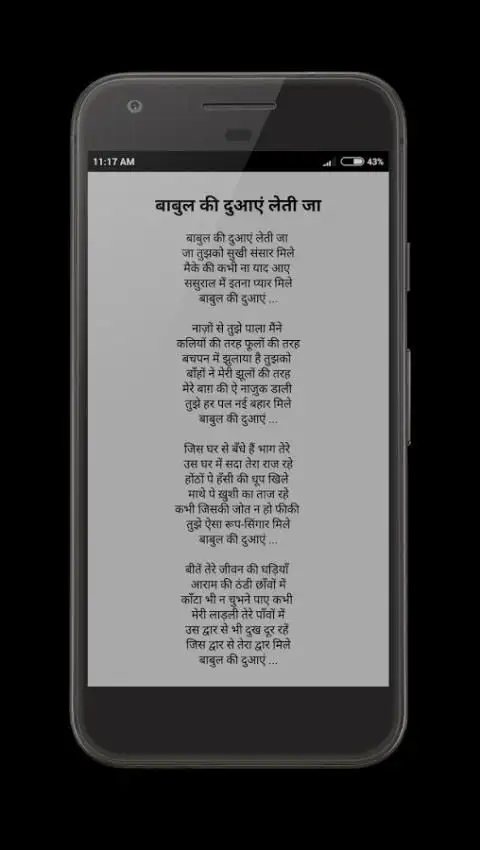 11:17 AM
43%
बाबुल की दुआएं लेती जा
बाबुल की दुआएं लेती जा
जा तुझको सुखी संसार मिले
मैके की कभी ना याद आए
ससुराल में इतना प्यार मिले
बाबुल की दुआएं ...
नाज़ों से तुझे पाला मैंने
कलियों की तरह फूलों की तरह
बचपन में झुलाया है तुझको
बाँहों ने मेरी झूलों की तरह
मेरे बाग़ की ऐ नाज़ुक डाली
तुझे हर पल नई बहार मिले
बाबुल की दुआएं ...
जिस घर से बँधे हैं भाग तेरे
उस घर में सदा तेरा राज रहे
होंठों पे हँसी की धूप खिले
माथे पे ख़ुशी का ताज रहे
कभी जिसकी जोत न हो फीकी
तुझे ऐसा रूप-सिंगार मिले
बाबुल की दुआएं ...
बीतें तेरे जीवन की घड़ियाँ
आराम की ठंडी छाँवों में
काँटा भी न चुभने पाए कभी
मेरी लाड़ली तेरे पाँवों में
उस द्वार से भी दुख दूर रहें
जिस द्वार से तेरा द्वार मिले
बाबुल की दुआएं ...